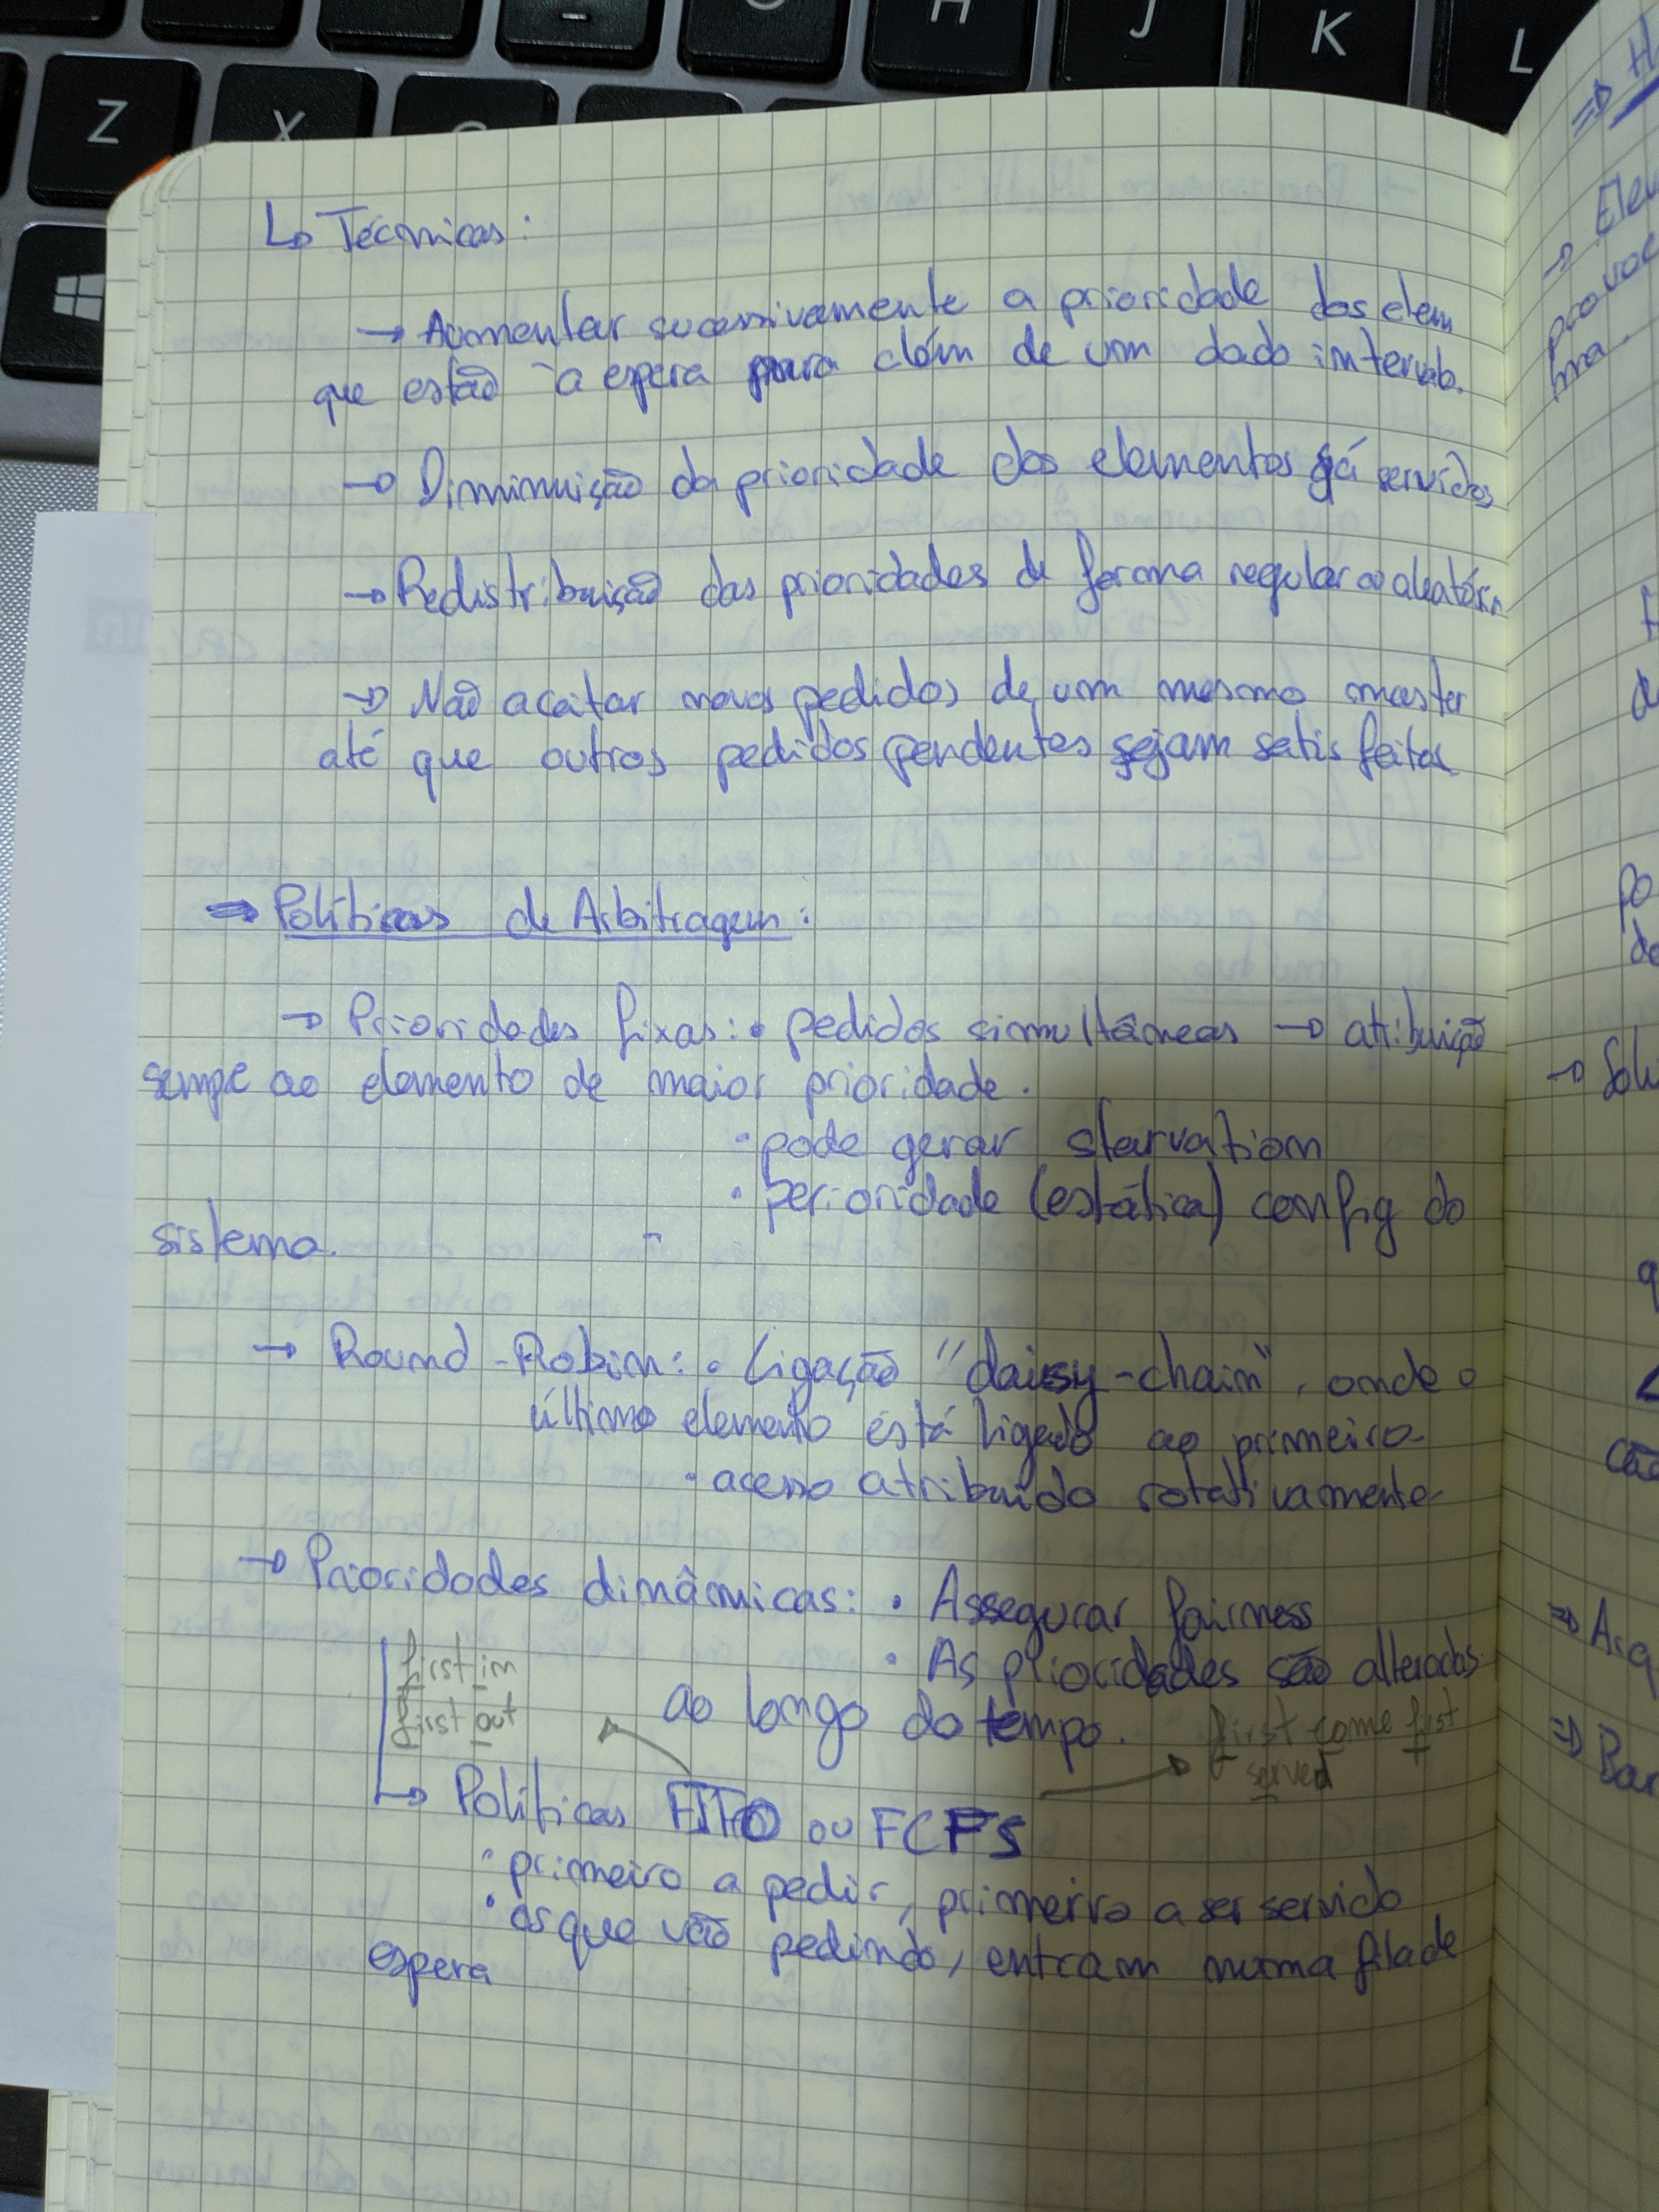 ↳ Técnicas:
→ Aumentar sucessivamente a prioridade dos elem
que estão à espera para além de um dado intervalo.
→ Diminuição da prioridade dos elementos já servidos
→ Redistribuição das prioridades de forma regular ou aleatória
→ Não aceitar novos pedidos de um mesmo master
até que outros pedidos pendentes sejam satisfeitos
⇒ Políticas de Arbitragem:
→ Prioridades fixas: • pedidos simultâneos → atribuição
sempre ao elemento de maior prioridade.
• pode gerar starvation
• perioridade (estática) config do
sistema.
→ Round-Robin: • Ligação "daisy-chain", onde o
último elemento está ligado ao primeiro
• acesso atribuído rotativamente
→ Prioridades dinâmicas: • Assegurar fairness
• As prioridades são alteradas
ao longo do tempo.
first in
first out
first come first
served
↳ Políticas FIFO ou FCFS
• primeiro a pedir, primeiro a ser servido
• os que vão pedindo, entram numa fila de
espera
Z X H J K L